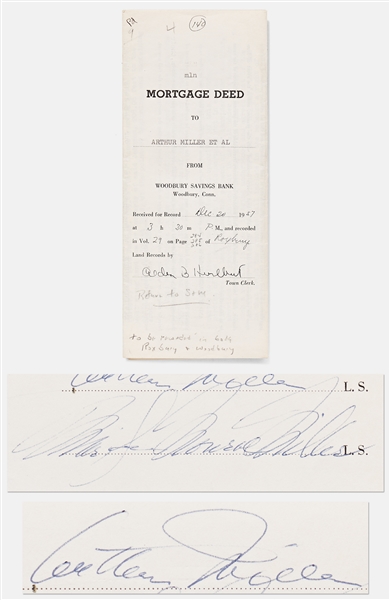 4 140
9
mln
MORTGAGE DEED
TO
ARTHUR MILLER ET AL
FROM
WOODBURY SAVINGS BANK
Woodbury, Conn.
Received for Record Dec 20 1957
at 3 h 30 m P.M., and recorded
in Vol. 29 on Page of Roxbury
Land Records by
Town Clerk.
Return to
to be recorded in both
Roxbury & Woodbury
Arthur Miller L. S.
Marilyn Monroe Miller L. S.
Arthur Miller